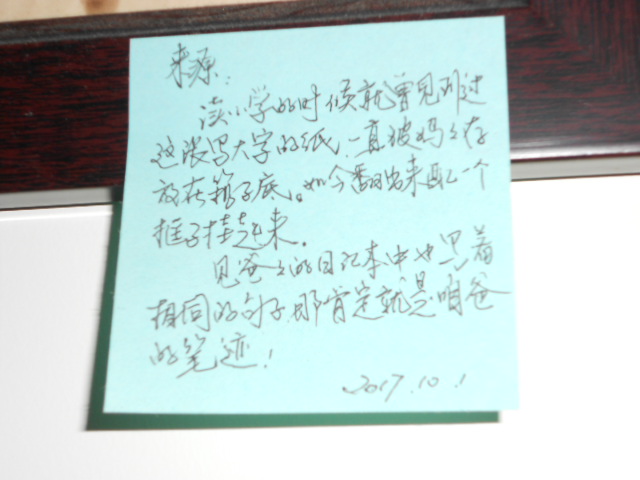 来源:
读小学的时候就曾见到过
这张写大字的纸,一直被妈妈存
放在箱子底。如今翻出来配一个
框子挂起来.
见爸爸的日记本中也写着
相同的句子,那肯定就是咱爸
的笔迹!
2017.10.1